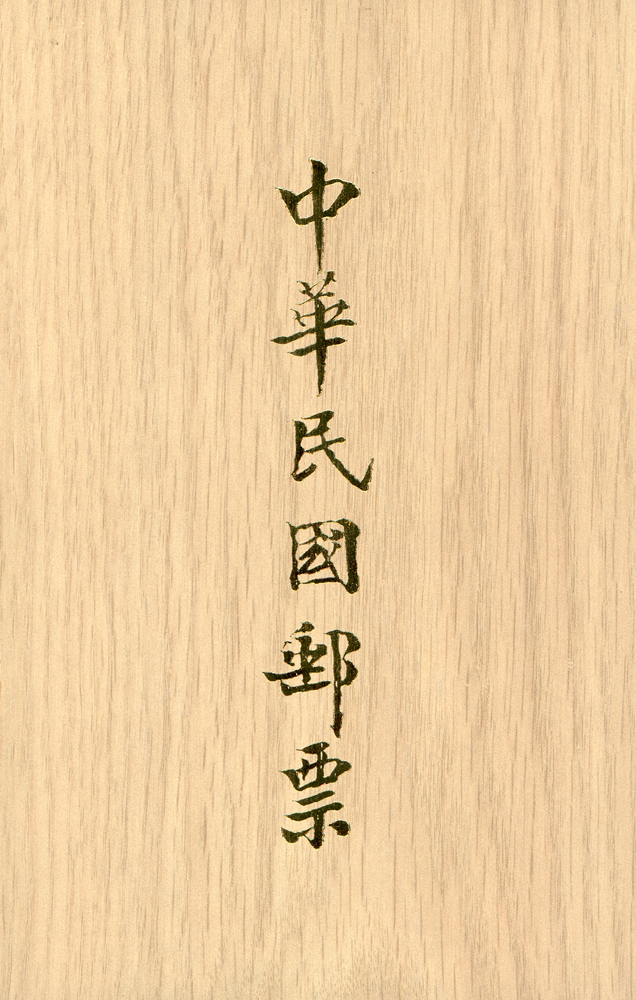 中華民國郵票